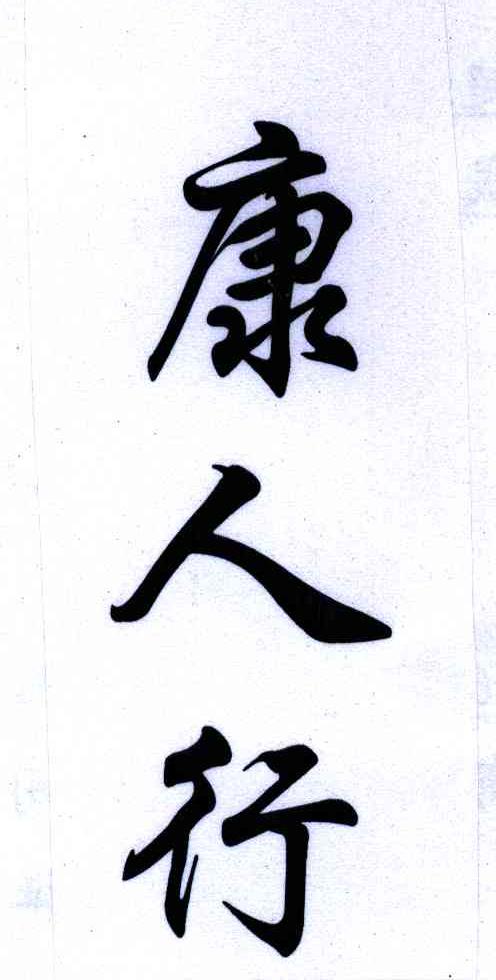 康人行